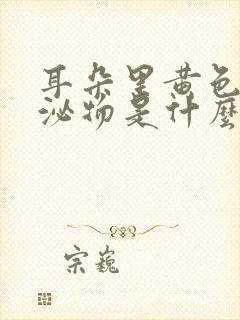 耳朵里黄色
泌物是什麼
宗巍